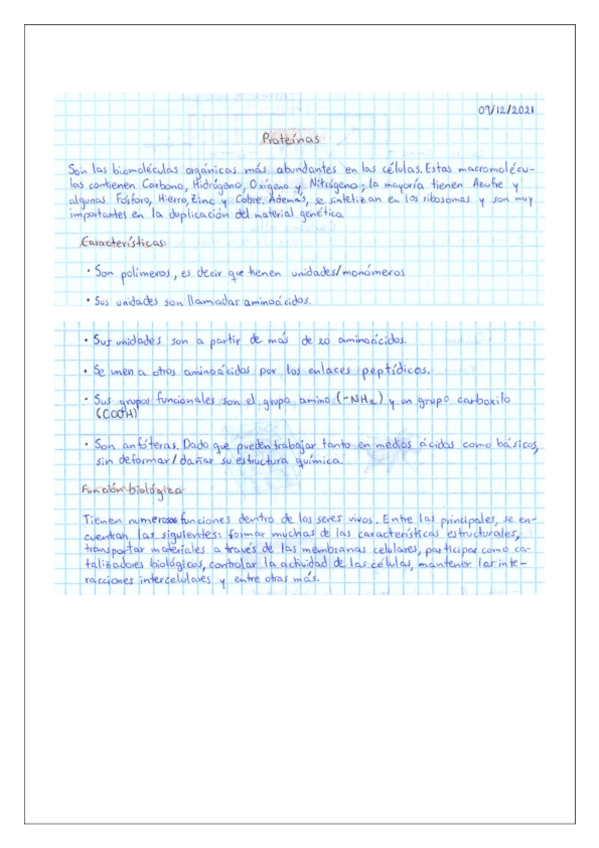 09/12/2021
Proteínas
Son las biomoléculas orgánicas más abundantes en las células. Estas macromolécu-
las contienen Carbono, Hidrógeno, Oxígeno y Nitrógeno; la mayoría tienen Azufre y
algunas Fósforo, Hierro, Zinc y Cobre. Además, se sintetizan en los ribosomas y son muy
importantes en la duplicación del material genético.
Características:
• Son polímeros, es decir que tienen unidades/monómeros
• Sus unidades son llamadas aminoácidos.
• Sus unidades son a partir de más de 20 aminoácidos.
• Se unen a otros aminoácidos por los enlaces peptídicos.
• Sus grupos funcionales son el grupo amino (-NH2) y un grupo carboxilo
(COOH)
• Son anfóteras. Dado que pueden trabajar tanto en medios ácidos como básicos,
sin deformar/dañar su estructura química.
Función biológica
Tienen numerosas funciones dentro de los seres vivos. Entre las principales, se en-
cuentran las siguientes: formar muchas de las características estructurales,
transportar materiales a través de las membranas celulares, participar como ca-
talizadores biológicos, controlar la actividad de las células, mantener las inte-
racciones intercelulares y entre otras más.